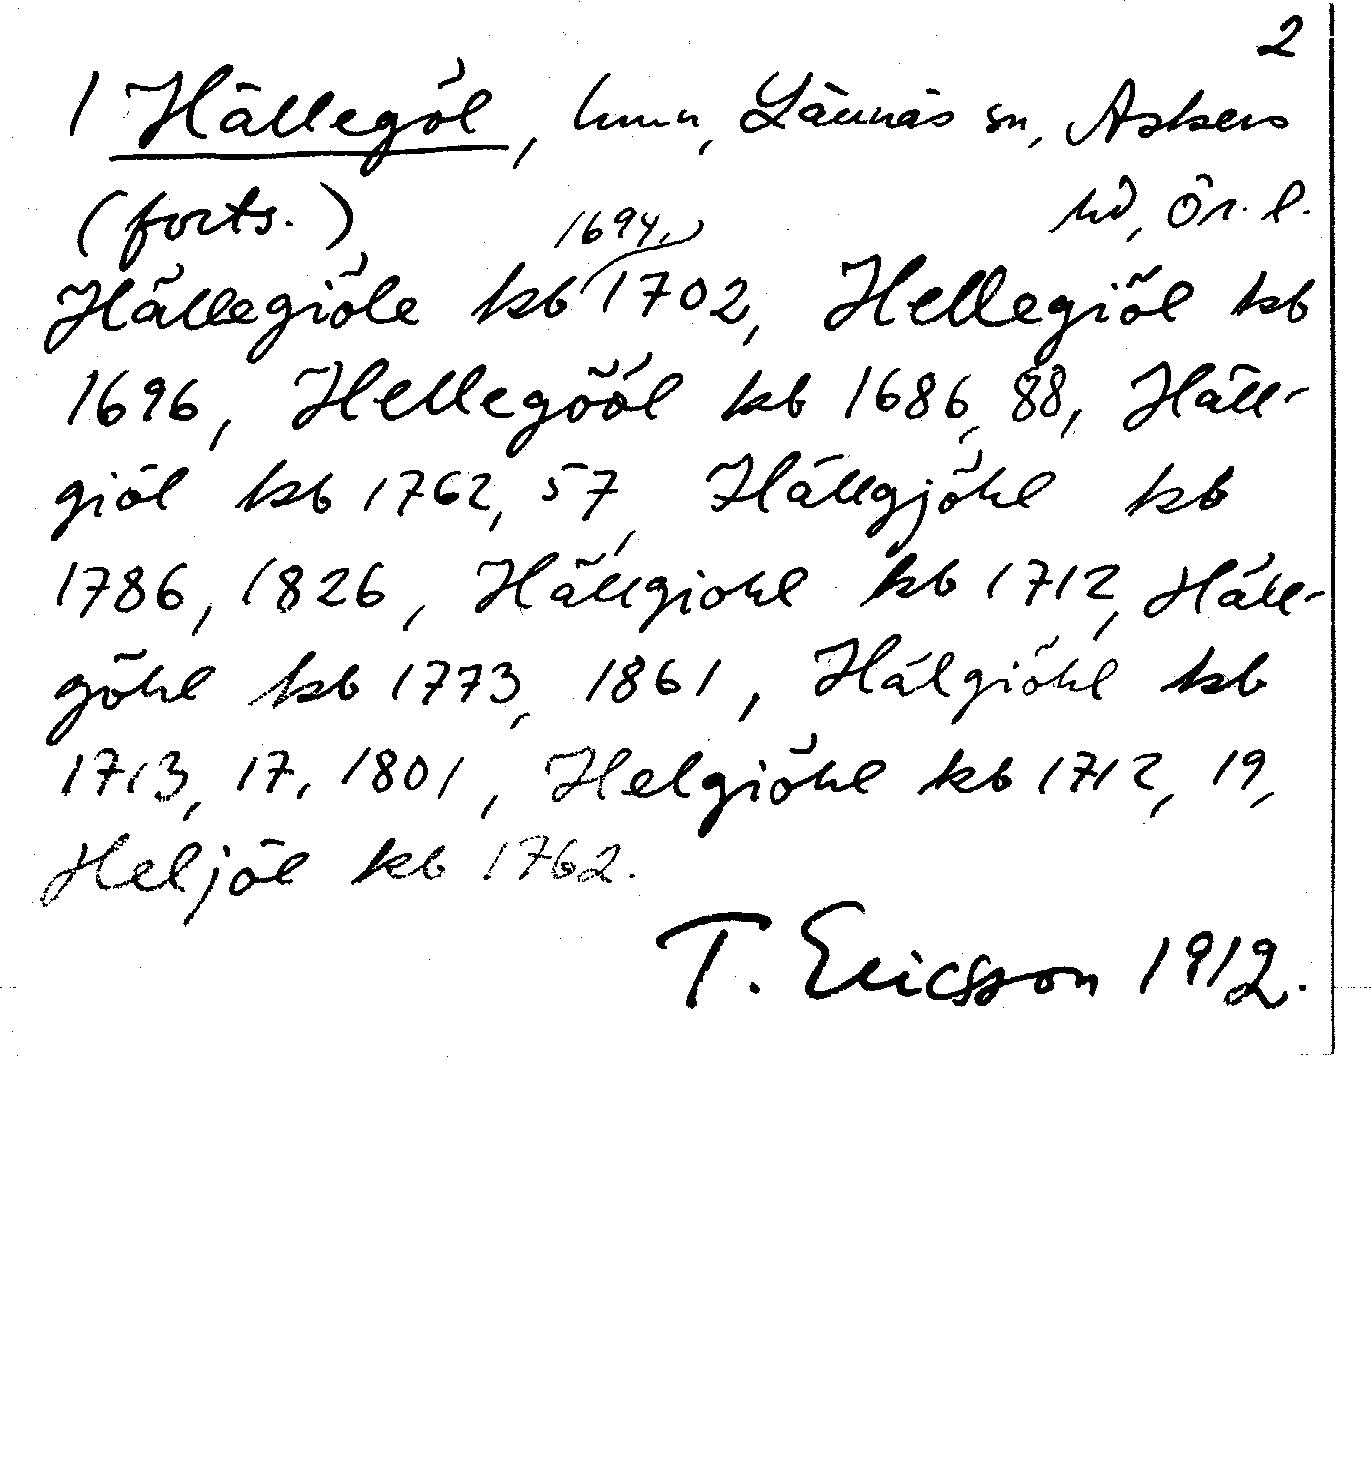 2
1 Hällegöl, hmn, Lännäs sn, Askers
(forts.) hd, Ör. l.
1694,
Hällegiöle kb 1702, Hellegiöl kb
1696, Hellegööl kb 1686, 88, Häll-
giöl kb 1762, 57, Hällgjöhl kb
1786, 1826, Hällgiohl kb 1712, Häll-
göhl kb 1773, 1861, Hälgiöhl kb
1713, 17, 1801, Helgiöhl kb 1712, 19,
Heljöl kb 1762.
T. Ericsson 1912.